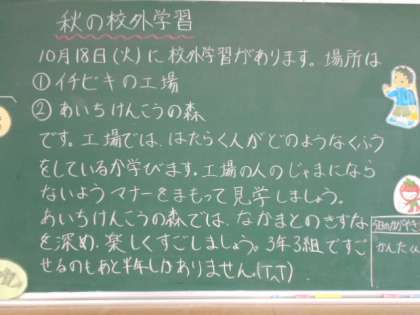 秋の校外学習
10月18日(火)に校外学習があります。場所は
①イチビキの工場
②あいちけんこうの森
です。工場では、はたらく人がどのようなくふう
をしているか学びます。工場の人のじゃまになら
ないようマナーをまもって見学しましょう。
あいちけんこうの森では、なかまとのきずな
を深め、楽しくすごしましょう。3年3組ですご
せるのもあと半年しかありません。(T^T)
かんたん